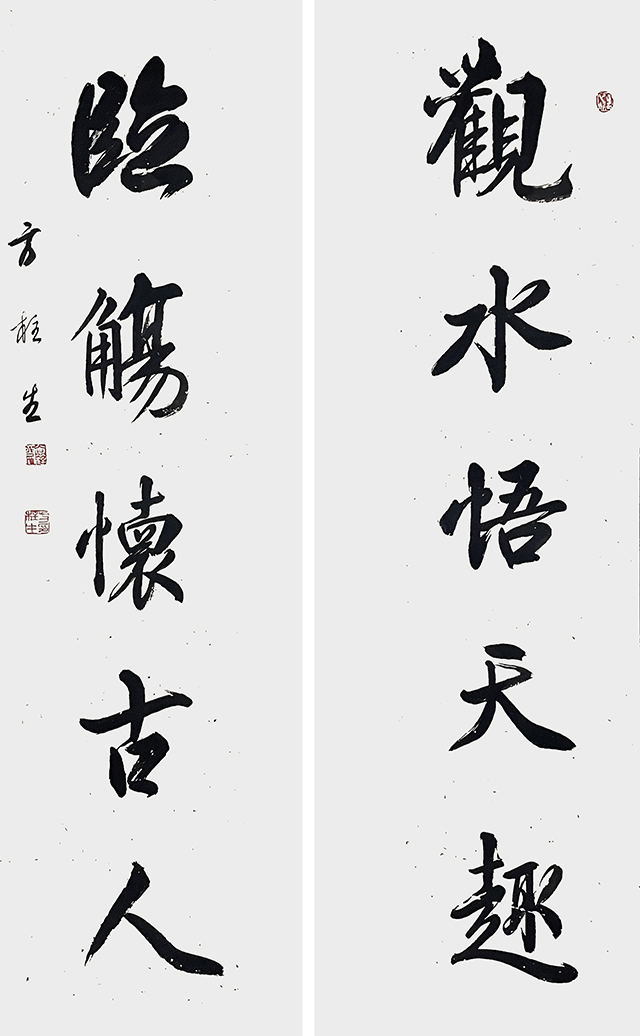 觀水悟天趣
臨觴懷古人
方柱生